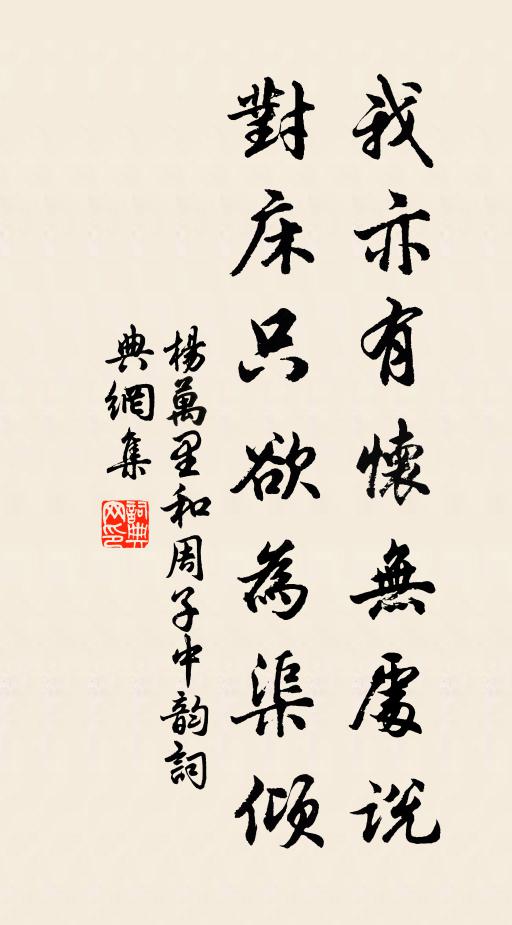 我亦有懷無處說
對床只欲為渠傾
楊萬里和周子中韵詞
典網集
詞典網印